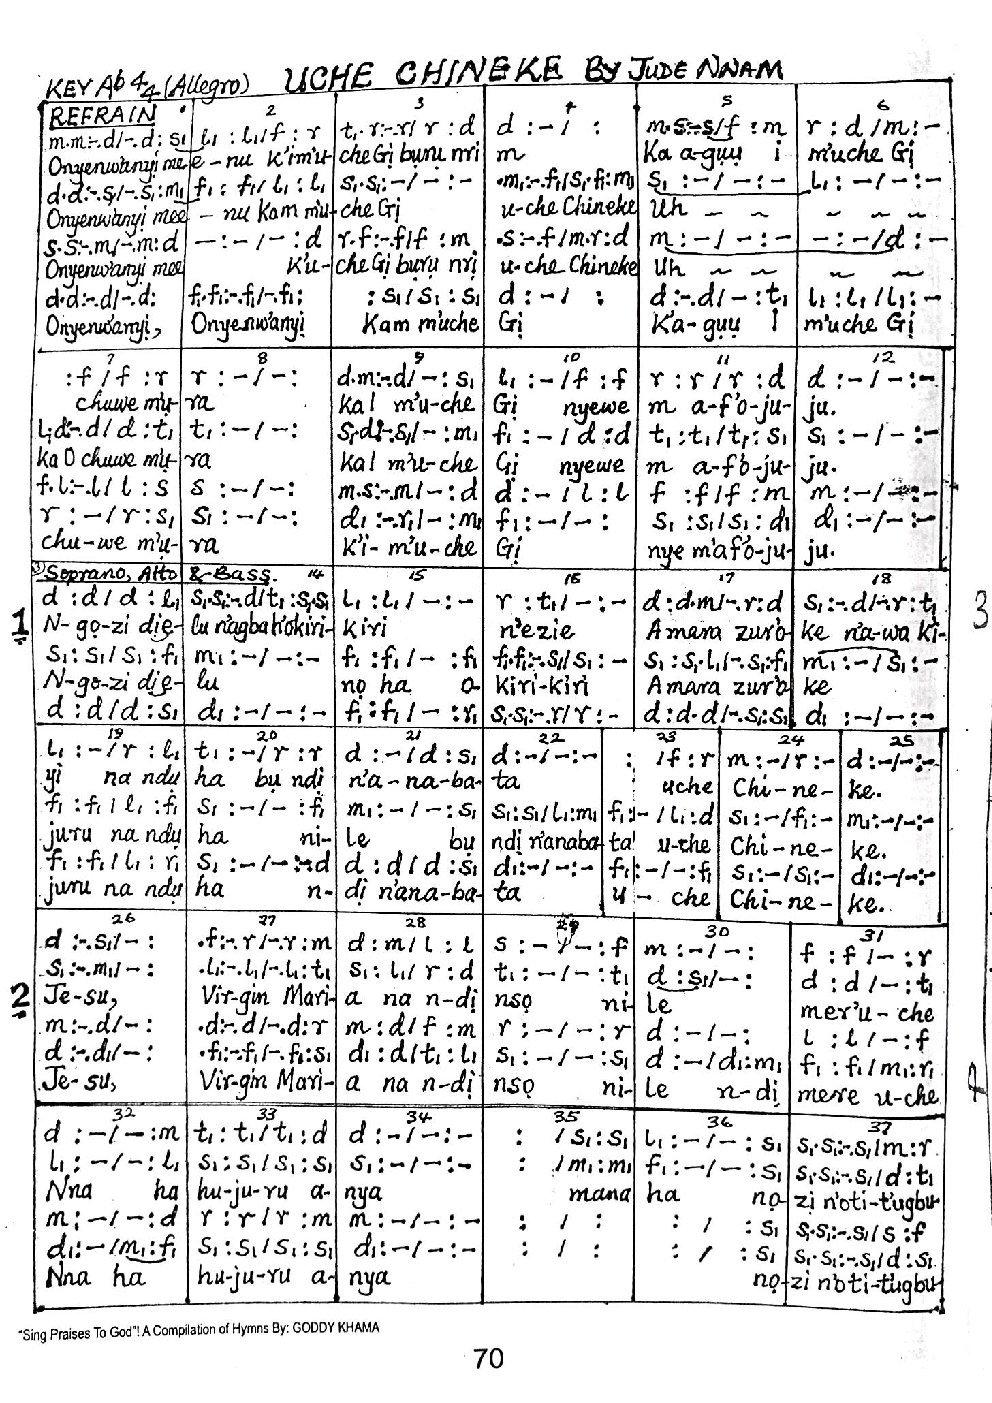 KEY Ab 4/4 (Allegro) UCHE CHINEKE BY JUDE NNAM
REFRAIN 2 3 4 5 6
m.m:-.d/-.d:s₁ l₁:l₁/f:r t₁.r:-.r/r:d d:-/ : m.s:-s/f:m r:d/m:-
Onyenwanyi mee e-nu k'im'u- che Gị bụrụ nri m Ka a-gụụ i m'uche Gị
d.d:-.s₁/-.s₁:m₁ f₁:f₁/l₁:l₁ s₁.s₁:-/-:- .m₁:-.f₁/s₁.f₁:m₁ s₁:-/-:- l₁:-/-:-
Onyenwanyi mee - nu Kam m'u- che Gị u-che Chineke Uh ~ ~ ~ ~ ~
s.s:-.m/-.m:d -:-/-:d r.f:-.f/f:m .s:-.f/m.r:d m:-/-:- -:-/d:-
Onyenwanyi mee K'u- che Gị bụrụ nri u-che Chineke Uh ~ ~ ~ ~
d.d:-.d/-.d: f₁.f₁:-.f₁/-.f₁: :s₁/s₁:s₁ d:-/ : d:-.d/-:t₁ l₁:l₁/l₁:-
Onyenwanyi, Onyenwanyi Kam m'uche Gị Ka-gụụ I m'uche Gị
7 8 9 10 11 12
:f/f:r r:-/-: d.m:-.d/-:s₁ l₁:-/f:f r:r/r:d d:-/-:-
chuwe m'ụ- ra Ka I m'u-che Gị nyewe m a-f'o-ju- ju.
l₁.d:-.d/d:t₁ t₁:-/-: s₁.d:-.s₁/-:m₁ f₁:-/d:d t₁:t₁/t₁:s₁ s₁:-/-:-
Ka O chuwe m'ụ- ra Ka I m'u-che Gị nyewe m a-f'o-ju- ju.
f.l:-.l/l:s s:-/-: m.s:-.m/-:d d:-/l:l f:f/f:m m:-/-:-
r:-/r:s₁ s₁:-/-: d₁:-.r₁/-:m₁ f₁:-/-: s₁:s₁/s₁:d₁ d₁:-/-:-
chu-we m'ụ- ra K'i-m'u-che Gị nye m'afo-ju- ju.
Soprano, Alto & Bass. 14 15 16 17 18
d:d/d:l₁ s₁.s₁:-.d/t₁:s₁.s₁ l₁:l₁/-:- r:t₁/-:- d:d.m/-.r:d s₁:-.d/-.r:t₁
1 N-go-zi dịe- lu n'agbah'okiri- kiri n'ezie Amara zur'o ke n'a-wa ki-
s₁:s₁/s₁:f₁ m₁:-/-:- f₁:f₁/-:f₁ f₁.f₁:-.s₁/s₁:- s₁:s₁.l₁/-.s₁:f₁ m₁:-/s₁:-
N-go-zi dịe- lu nọ ha o- kiri-kiri Amara zur'o ke
d:d/d:s₁ d₁:-/-:- f₁:f₁/-:r₁ s₁.s₁:-.r/r:- d:d.d/-.s₁:s₁ d₁:-/-:-
19 20 21 22 23 24 25
l₁:-/r:l₁ t₁:-/r:r d:-/d:s₁ d:-/-:- : /f:r m:-/r:- d:-/-:-
yi na ndụ ha bụ ndị n'a-na-ba- ta uche Chi-ne- ke.
f₁:f₁/l₁:f₁ s₁:-/-:f₁ m₁:-/-:s₁ s₁:s₁/l₁:m₁ f₁:-/l₁:d s₁:-/f₁:- m₁:-/-:-
juru na ndụ ha ni- le bụ ndị n'anaba- ta' u-che Chi-ne- ke.
f₁:f₁/l₁:r₁ s₁:-/-:d d:d/d:s₁ d₁:-/-:- f₁:-/-:f₁ s₁:-/s₁:- d₁:-/-:-
juru na ndụ ha n- dị n'ana-ba- ta u- che Chi-ne- ke.
26 27 28 29 30 31
d:-.s₁/-: .f:-.r/-.r:m d:m/l:l s:-/-:f m:-/-: f:f/-:r
.s₁:-.m₁/-: .l₁:-.l₁/-.l₁:t₁ s₁:l₁/r:d t₁:-/-:t₁ d:s₁/-: d:d/-:t₁
2 Je-su, Vir-gin Mari- a na n-dị nsọ ni- le mer'u-che
m:-.d/-: .d:-.d/-.d:r m:d/f:m r:-/-:r d:-/-: l:l/-:f
d:-.d₁/-: .f₁:-.f₁/-.f₁:s₁ d₁:d/t₁:l₁ s₁:-/-:s₁ d:-/d₁:m₁ f₁:f₁/m₁:r₁
Je-su, Vir-gin Mari- a na n-dị nsọ ni- le n-dị mere u-che
32 33 34 35 36 37
d:-/-:m t₁:t₁/t₁:d d:-/-:- : /s₁:s₁ l₁:-/-:s₁ s₁.s₁:-.s₁/m:r
l₁:-/-:l₁ s₁:s₁/s₁:s₁ s₁:-/-:- : /m₁:m₁ f₁:-/-:s₁ s₁.s₁:-.s₁/d:t₁
Nna ha hu-ju-ru a- nya mana ha nọ- zi n'oti-t'ugbu
m:-/-:d r:r/r:m m:-/-:- : / : : / :s₁ s₁.s₁:-.s₁/s:f
d₁:-/m₁:f₁ s₁:s₁/s₁:s₁ d₁:-/-:- : / : : / :s₁ s₁.s₁:-.s₁/d:s₁
Nna ha hu-ju-ru a- nya nọ- zi n'oti-t'ugbu
3
4
"Sing Praises To God"! A Compilation of Hymns By: GODDY KHAMA
70